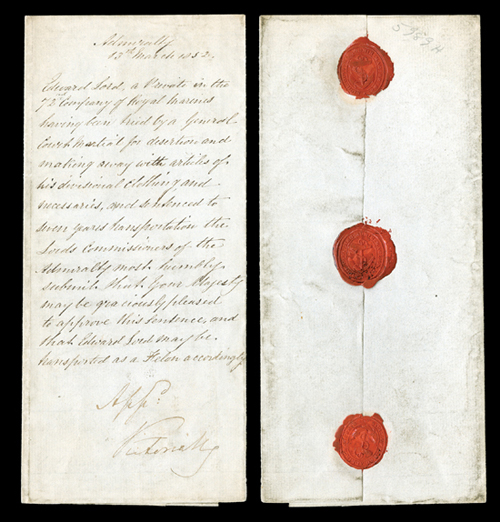 Admiralty
13th March 1852.
Edward Lord, a Private in the
72d Company of Royal Marines
having been tried by a General
Court Martial for desertion and
making away with articles of
his divisional clothing and
necessaries, and sentenced to
seven years transportation the
Lords Commissioners of the
Admiralty most humbly
submit that Your Majesty
may be graciously pleased
to approve this sentence, and
that Edward Lord may be
transported as a Felon accordingly
Appd.
Victoria R